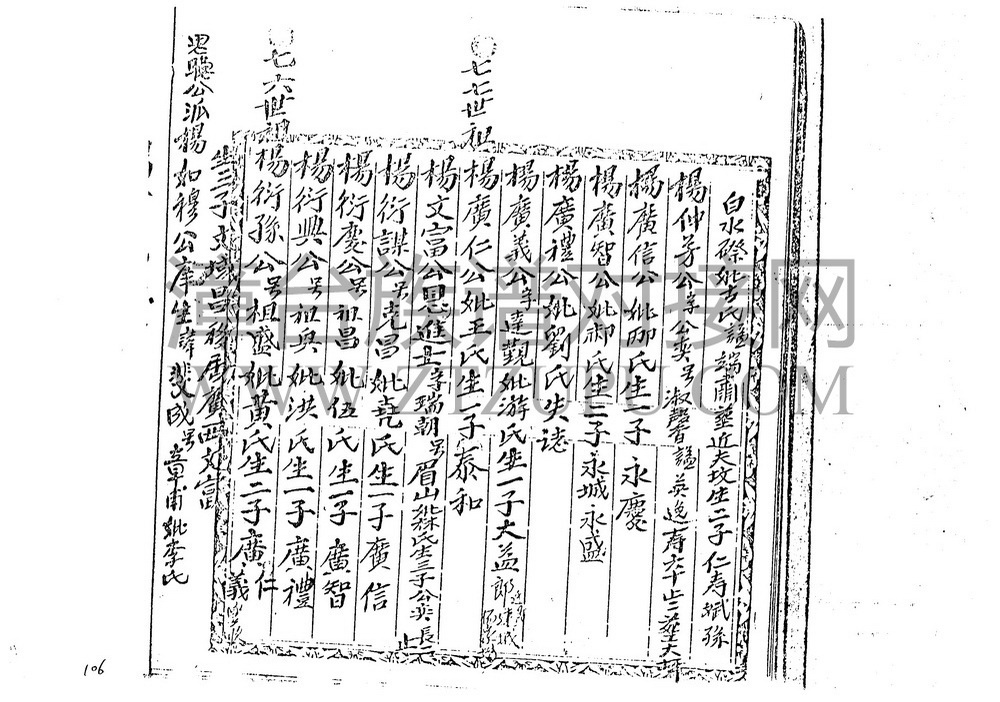 白水磜妣古氏諡端肅葬近夫坟生二子仁寿斌孫
楊仲芳公字公奕号淑馨諡英逸寿六十止二葬大
楊廣信公妣邱氏生一子永慶
楊廣智公妣柳氏生二子永城永盛
楊廣禮公妣劉氏失誌
楊廣義公字達觀妣游氏生一子大益郎
七七世祖
楊廣仁公妣王氏生一子泰和
楊文富公思進士字瑞朝号眉山氏生三子公奕長二
楊衍謀公号克昌妣堯氏生一子廣信
楊衍慶公号祖昌妣伍氏生一子廣智
楊衍興公号祖興妣洪氏生一子廣禮
七六世祖
楊衍孫公号祖盛妣黃氏生二子廣仁
廣儀
生三子文
思聰公派楊如穆公庠生諱斐成号章甫妣李氏
漳台族谱对接网
WWW.ZTZUPU.COM
106